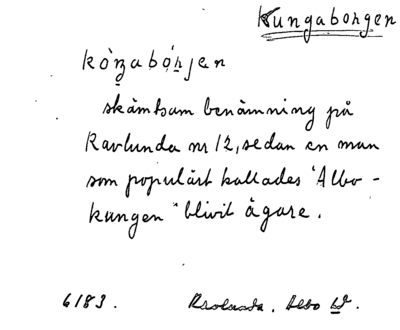 Kungaborgen
kòŋabór̠jɐn
skämtsam benämning på
Ravlunda nr 12, sedan en man
som populärt kallades "Albo-
kungen" blivit ägare.
6183. Ravlunda. Albo hd.